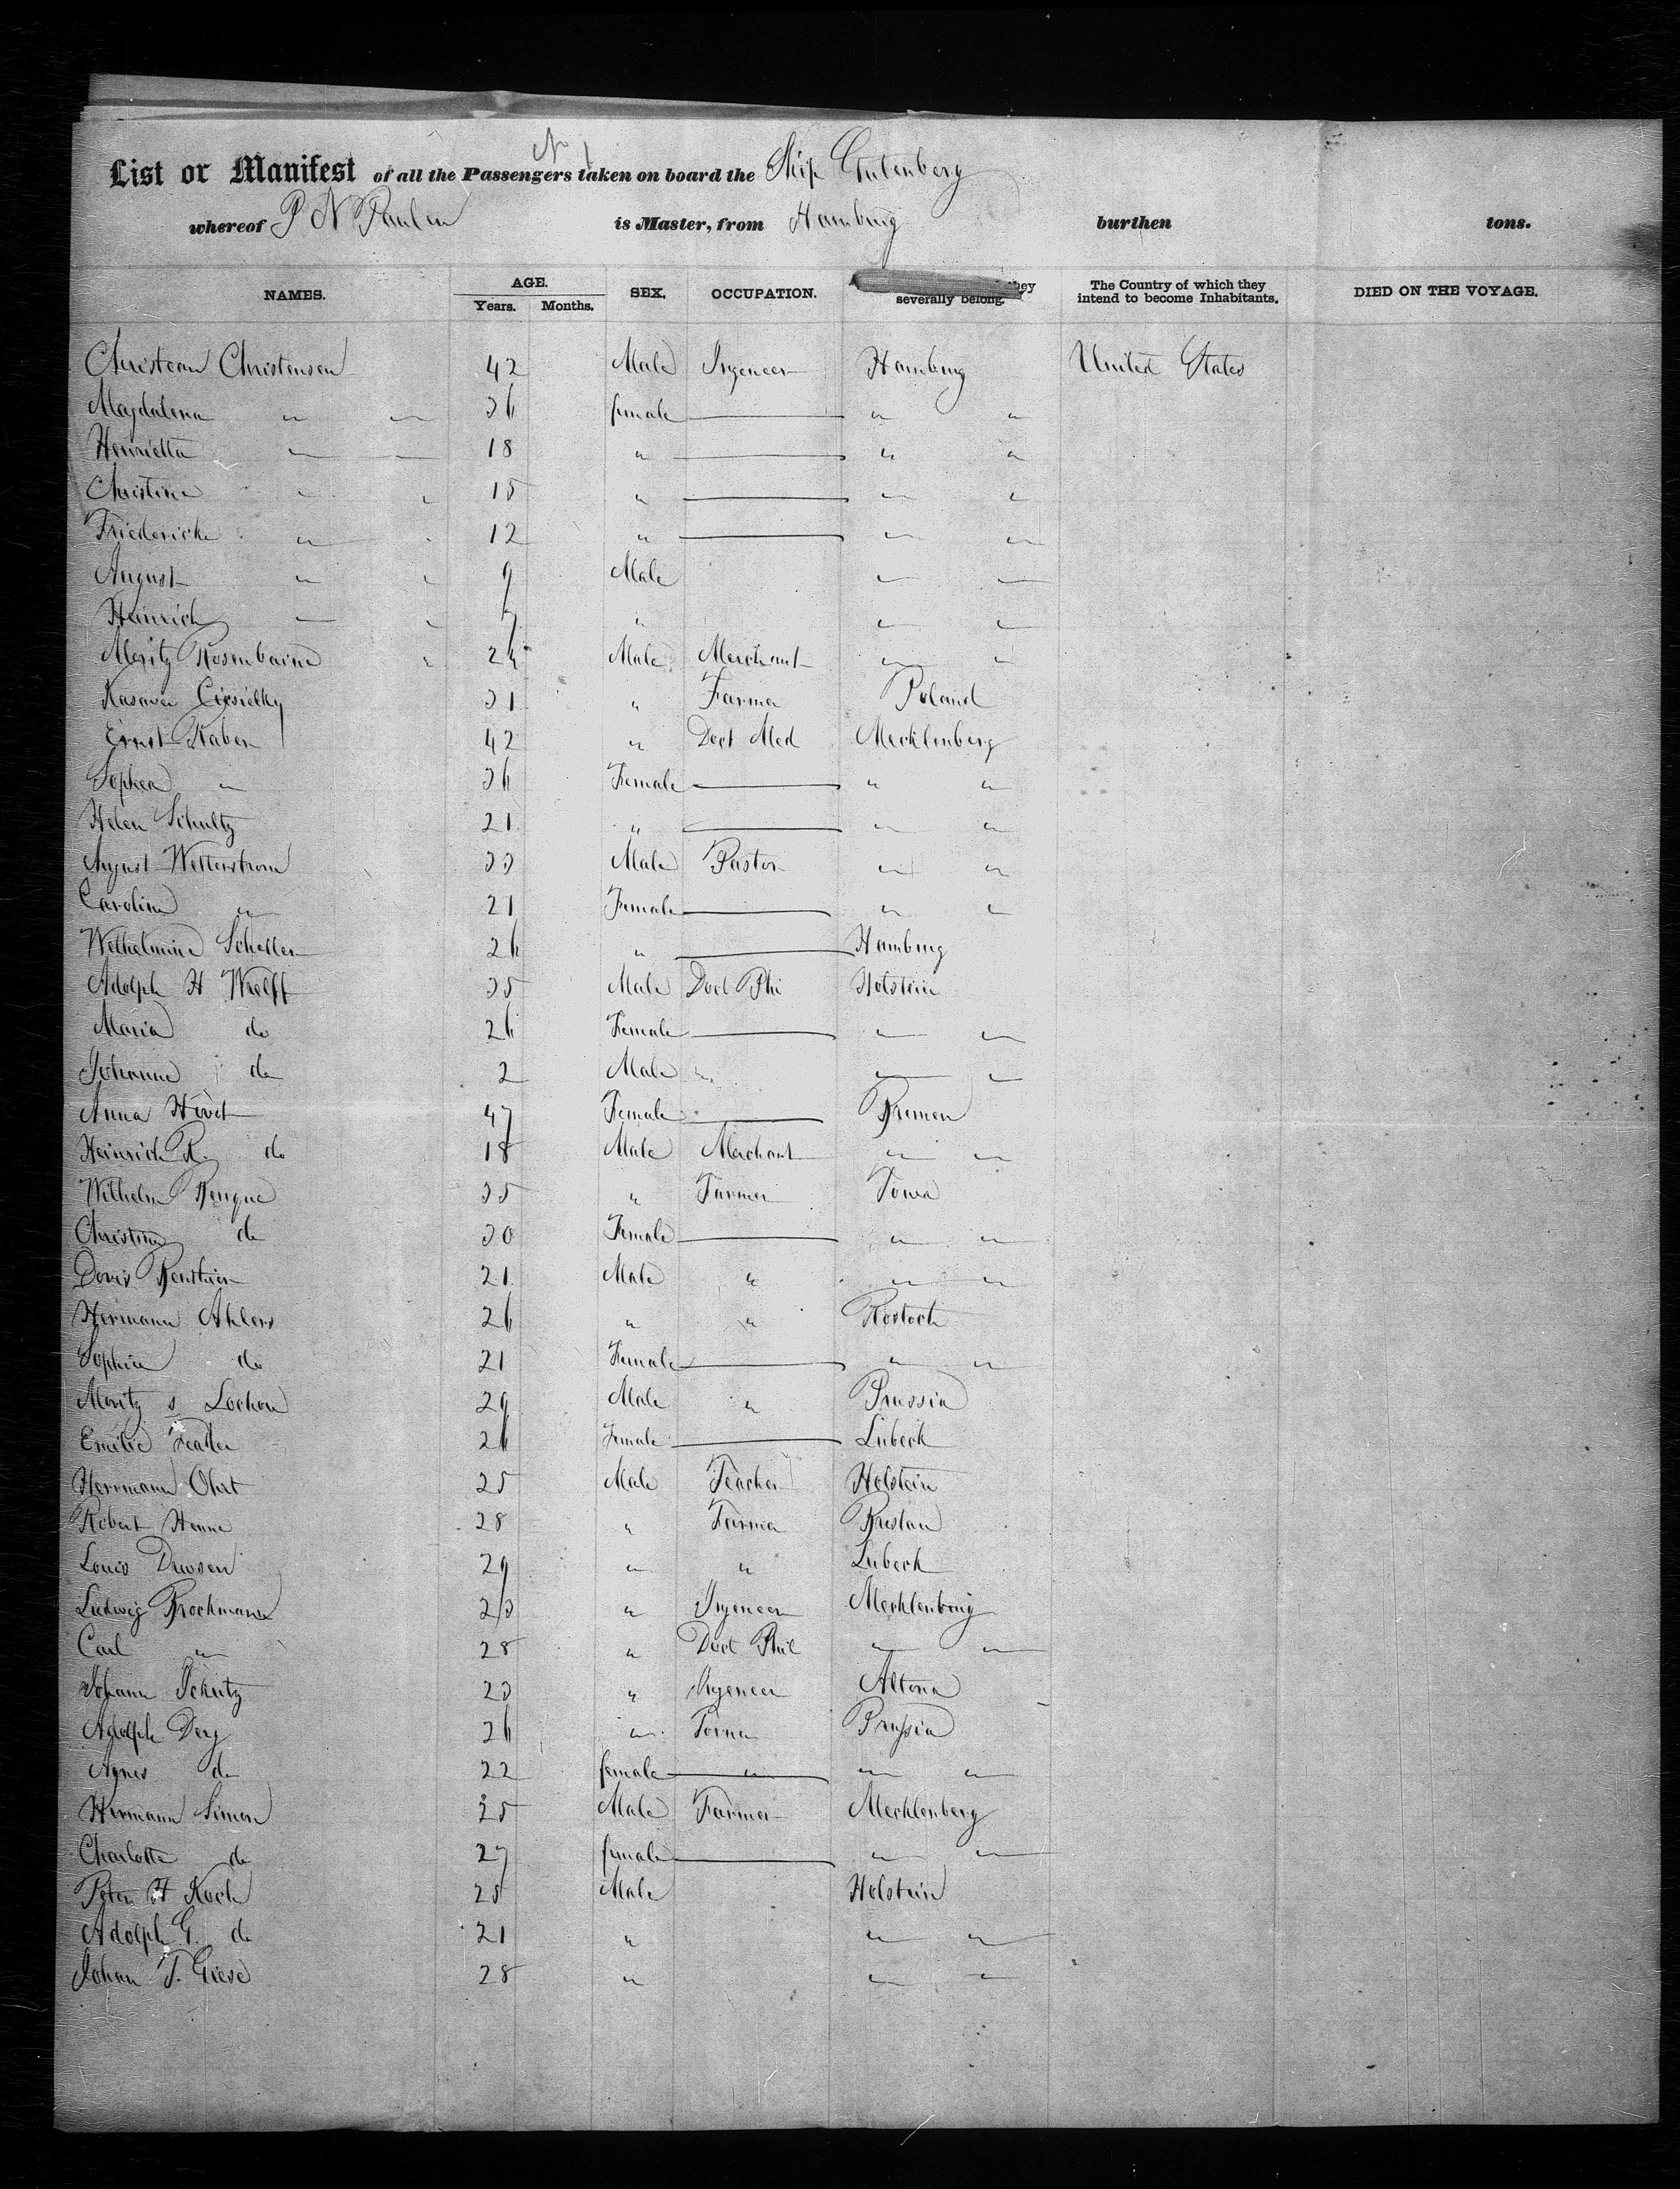 No 1
List or Manifest of all the Passengers taken on board the Ship Gutenberg
whereof P N Paulsen is Master, from Hamburg burthen tons.
NAMES. AGE. Years. Months. SEX. OCCUPATION. they severally belong. The Country of which they intend to become Inhabitants. DIED ON THE VOYAGE.
Christean Christensen 42 Male Ingeneer Hamburg United States
Magdalena " " 36 female " "
Henrietta " " 18 " " "
Christine " " 15 " " "
Friedericke " " 12 " " "
August " " 9 Male " "
Heinrich " " 7 " " "
Moritz Rosenbaine " 24 Male Merchant " "
Kasaver Ciesielky 31 " Farmer Poland
Ernst Raben 42 " Doct Med Mecklenberg
Sophea " 36 Female " "
Helen Schultz 21 " " "
August Wetterstrom 33 Male Pastor " "
Caroline " 21 Female " "
Wilhelmine Scheller 26 " Hamburg
Adolph H Wulff 35 Male Doct Phi Holstein
Maria do 26 Female " "
Johanne do 2 Male " "
Anna 47 Female Bremen
Heinrich R. do 18 Male Merchant " "
Wilhelm 35 " Farmer Iowa
Christine do 30 Female " "
Doris 21 Male " " "
Hermann Ahlers 26 " " Rostock
Sophia do 21 Female " "
Moritz s Lochow 29 Male " Prussia
Emilie 26 Female Lubeck
Herrmann Ohrt 25 Male Teacher Holstein
Robert Henne 28 " Farmer Breslau
Louis 29 " " Lubeck
Ludwig Brockmann 23 " Ingeneer Mecklenburg
Carl " 28 " Doct Phil " "
Johann Schutz 23 " Ingeneer Altona
Adolph Dey 26 " Farmer Prussia
Agnes do 22 female " " "
Hermann Simon 25 Male Farmer Mecklenberg
Charlotte do 27 female " "
Peter H Koch 25 Male Holstein
Adolph G. do 21 " " "
Johan T. Giese 28 " " "